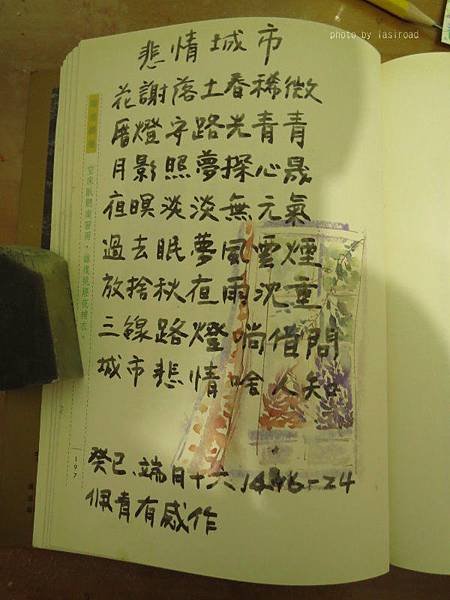 photo by lasiroad
悲情城市
花謝落土春稀微
厝燈字路光青青
月影照夢探心晟
夜暝淡淡無元氣
過去眠夢風雲煙
放捨秋夜雨沈重
三線路燈 借問
城市悲情啥人知
癸巳、端月十六
佩青有感作
197